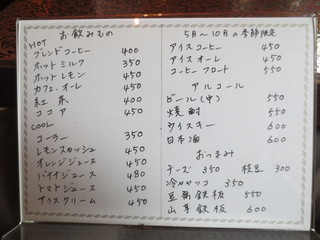 お飲みもの
HOT
ブレンドコーヒー 400
ホットミルク 350
ホットレモン 450
カフェ.オーレ 450
紅茶 400
ココア 450
COOL
コーラー 350
レモンスカッシュ 450
オレンジジュース 450
パインジュース 480
トマトジュース 450
アイスクリーム 450
5月〜10月の季節限定
アイスコーヒー 450
アイスオーレ 450
コーヒーフロート 550
アルコール
ビール(中) 550
焼酎 550
ウイスキー 600
日本酒 600
おつまみ
チーズ 350 枝豆 300
冷ヤッコ 350
豆腐鉄板 550
山芋鉄板 600